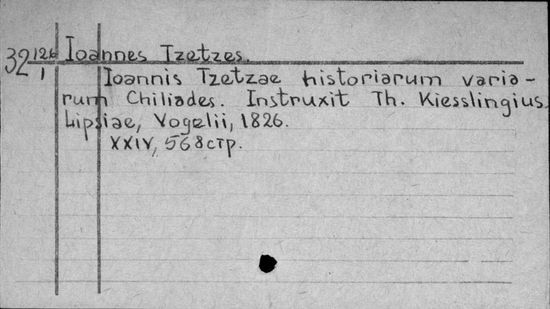 32 126/1 Ioannes Tzetzes.
Ioannis Tzetzae historiarum varia-
rum Chiliades. Instruxit Th. Kiesslingius
Lipsiae, Vogelii, 1826.
XXIV, 568 стр.